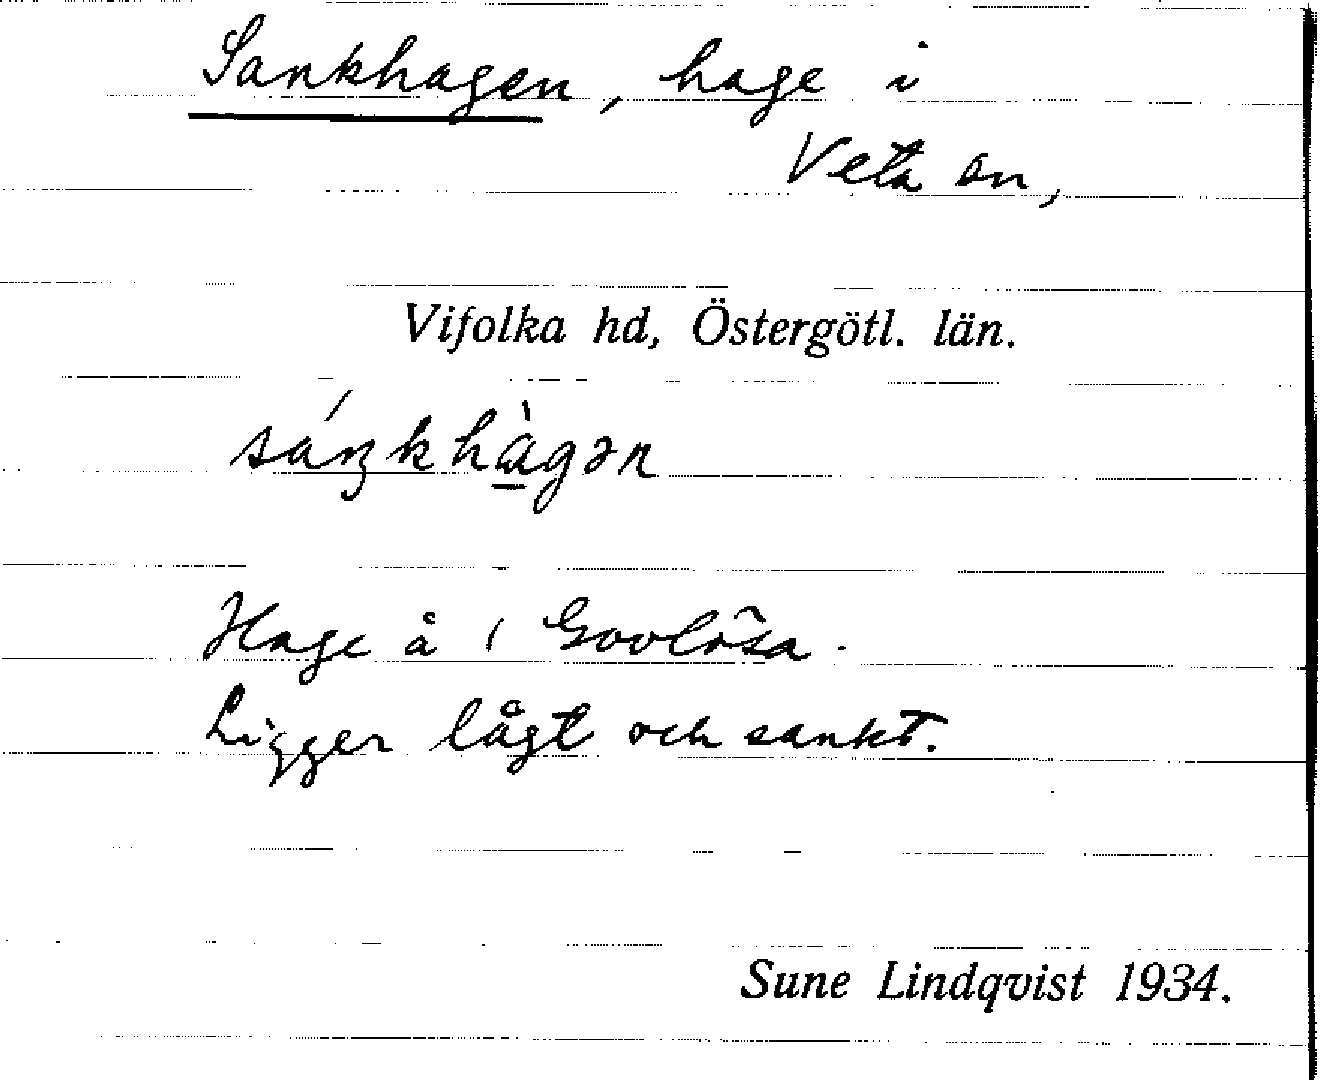 Sankhagen, hage i
Veta sn,
Vifolka hd, Östergötl. län.
sáŋkhà̱gən
Hage å 1 Govlösa.
Ligger lågt och sankt.
Sune Lindqvist 1934.